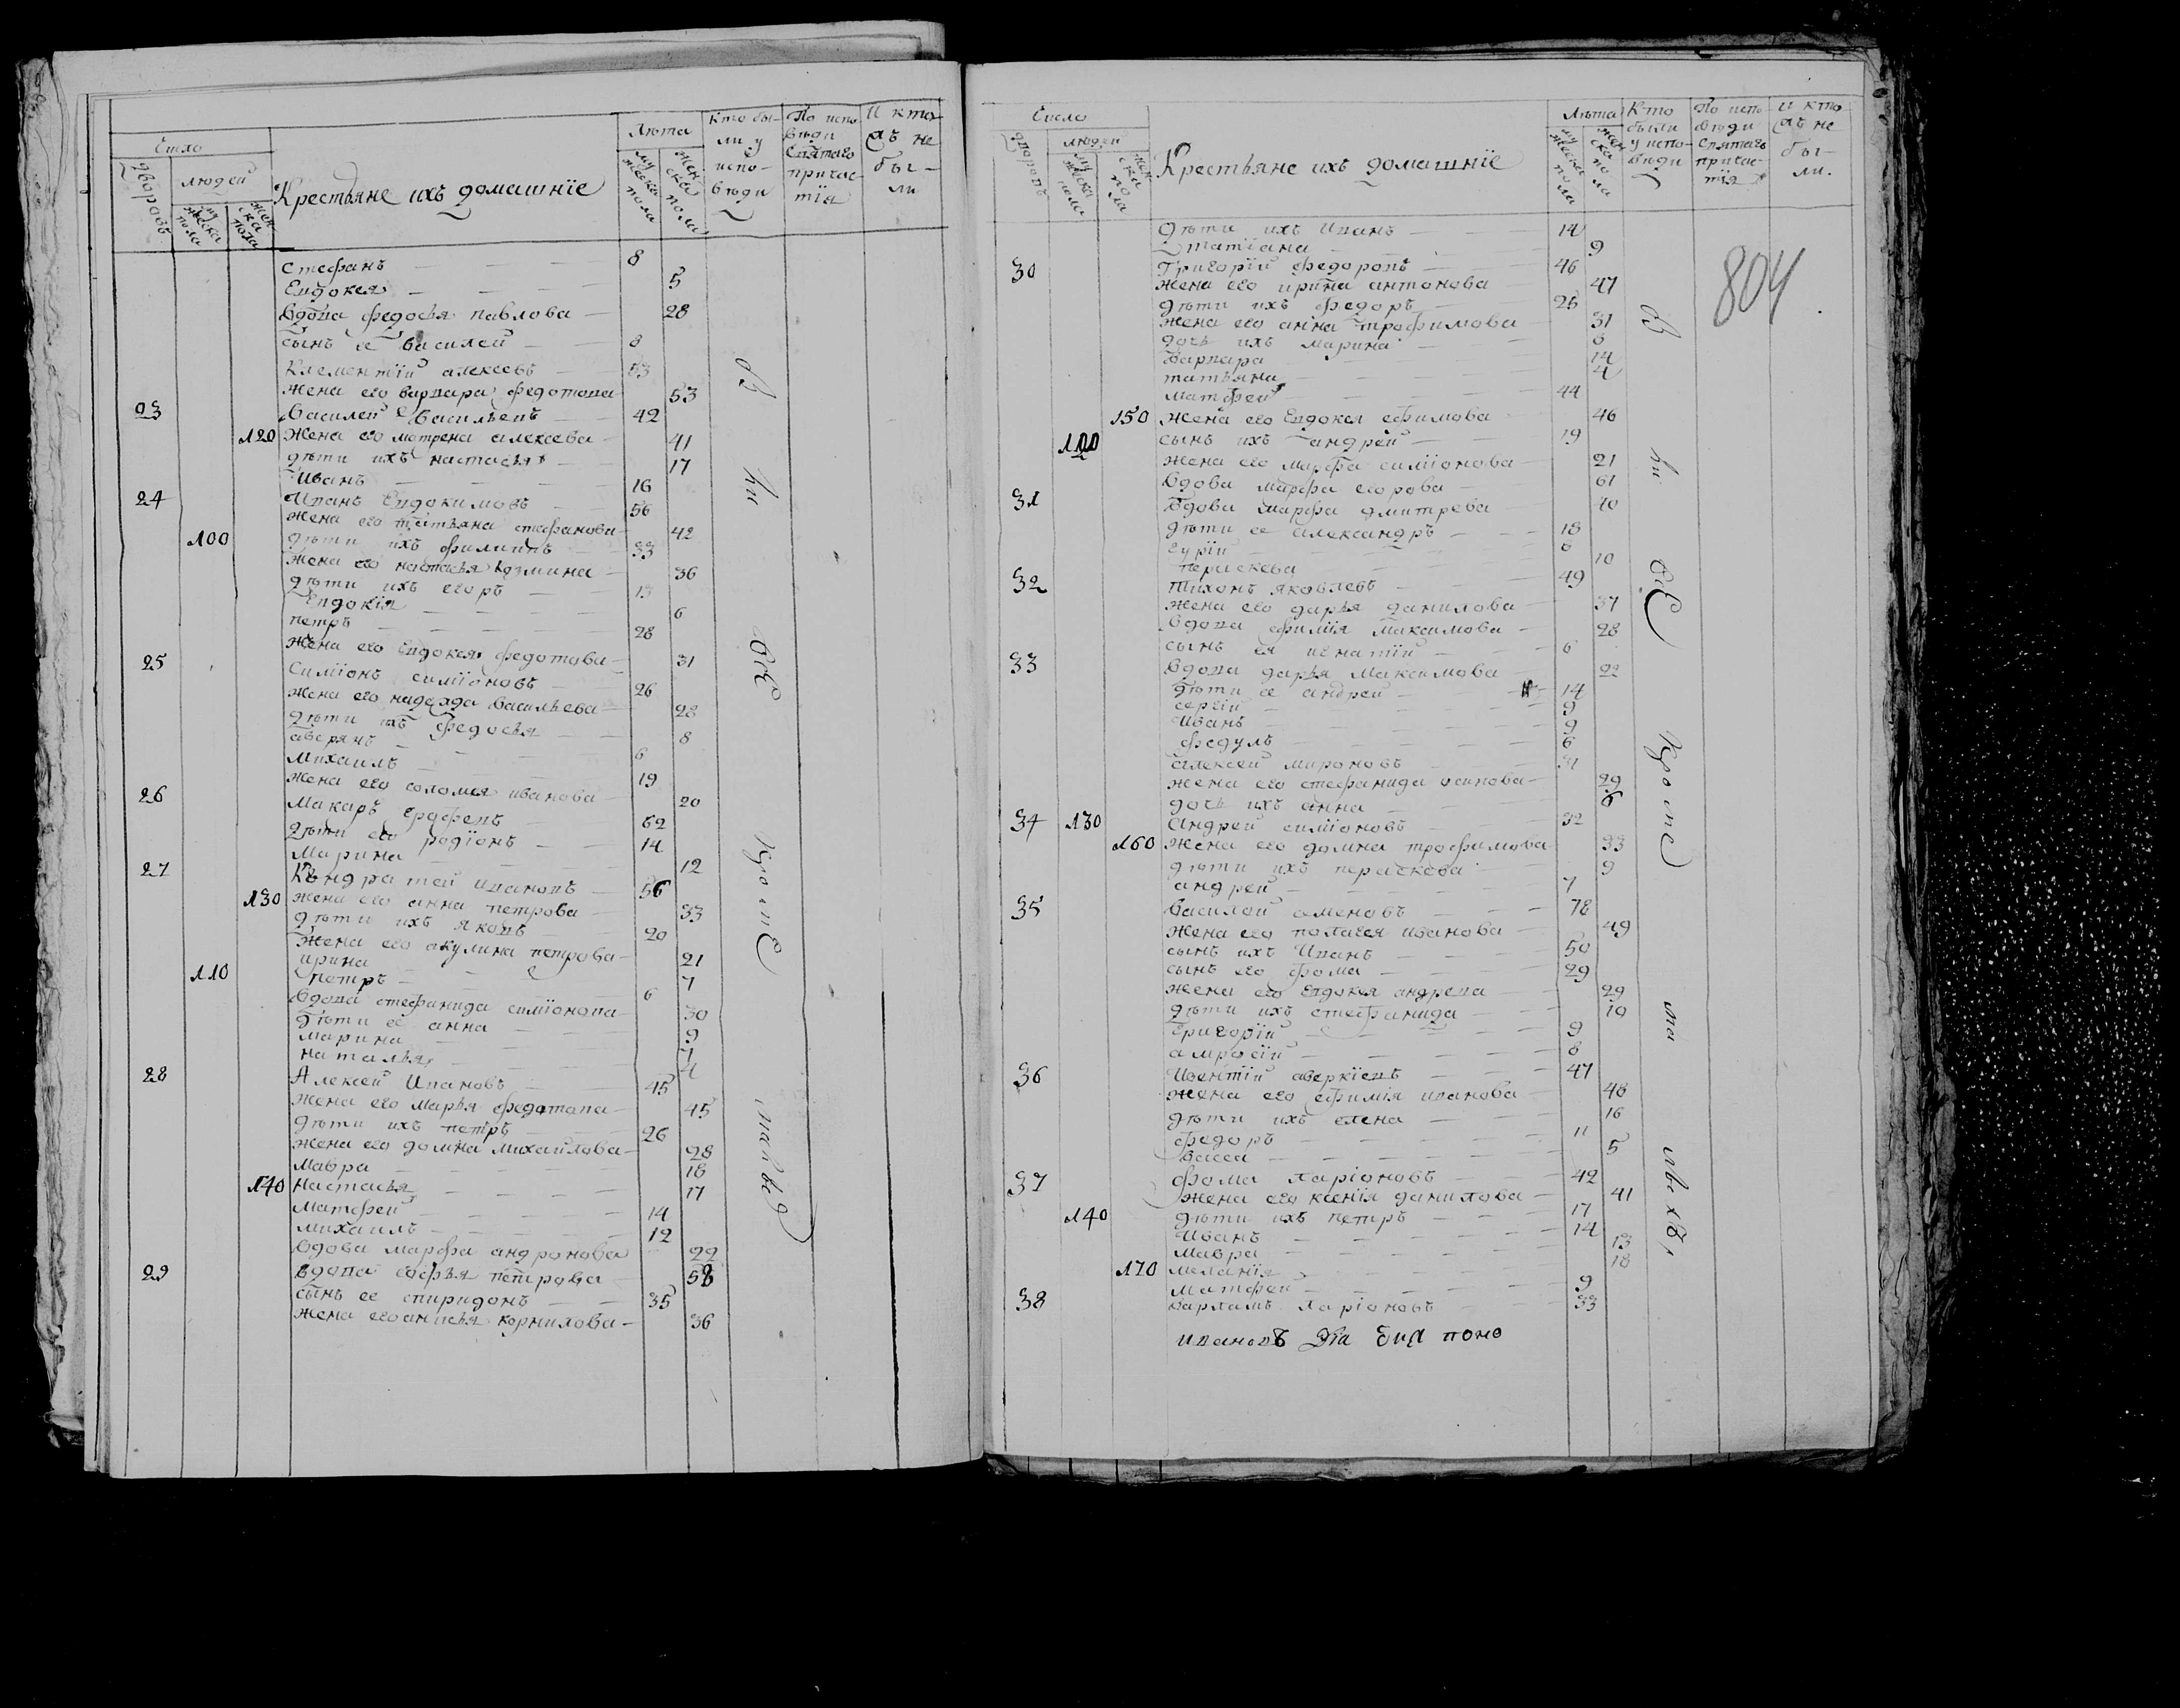 Крестьяне ихъ домашнїе
Стефанъ 8
Евдокея 5
вдова федосья павлова 28
сынъ ее василей 8
Клементїй алексеевъ 53
жена его варвара федотова 53
23 Василей Васильевъ 42
120 жена его матрена алексеева 41
дѣти ихъ настасья 17
Иванъ 16
24 Иванъ Евдокимовъ 56
жена его татьяна стефанова 42
100 дѣти ихъ филиппъ 33
жена его настасья козмина 36
дѣти ихъ егоръ 13
Евдокїя 6
петръ 28
жена его Евдокея федотова 31
25 Симїонъ симїоновъ 26
жена его надежда васильева 28
дѣти ихъ федосья 8
аверянъ 6
михаилъ 19
жена его соломея иванова 20
26 Макаръ Ерофеевъ 62
дѣти его родїонъ 14
Марина 12
27 Кондратей ивановъ 56
130 жена его анна петрова 53
дѣти ихъ яковъ 20
жена его акулина петрова 21
ирина 7
110 петръ 6
вдова стефанида симїонова 30
дѣти ее анна 9
марина 7
наталья 4
28 Алексей Ивановъ 45
жена его марья федотова 45
дѣти ихъ петръ 26
жена его домна михаилова 28
мавра 18
140 настасья 17
матфей 14
михаилъ 12
вдова марфа андронова 22
29 вдова софья петрова 58
сынъ ее спиридонъ 35
жена его анисья корнилова 36
Крестьяне ихъ домашнїе
804
дѣти ихъ Иванъ 14
татїана 9
30 Григорїй федоровъ 46
жена его ирина антонова 47
дѣти ихъ федоръ 25
жена его анна трофимова 31
дочь ихъ марина 8
варвара 14
татьяна 4
матфей 44
150 жена его Евдокея ефимова 46
сынъ ихъ андрей 19
жена его марфа симїонова 21
вдова марфа егорова 61
31 вдова марфа дмитрева 40
дѣти ее александръ 18
гурїй 6
параскева 10
32 тихонъ яковлевъ 49
жена его дарья данилова 37
вдова ефимїя максимова 28
сынъ ея игнатїй 6
33 вдова дарья Максимова 22
дѣти ее андрей 14
сергїй 9
Иванъ 9
федулъ 6
алексей мироновъ 31
жена его стефанида осипова 29
дочь ихъ анна 6
34 130 Андрей симїоновъ 32
160 жена его домна трофимова 33
дѣти ихъ параскева 9
андрей 7
35 василей семеновъ 78
жена его полагея иванова 49
сынъ ихъ Иванъ 50
сынъ его фома 29
жена его Евдокея андреева 29
дѣти ихъ стефанида 10
григорїй 9
амросїй 8
36 Ивентїй аверкїевъ 47
жена его ефимїя иванова 48
дѣти ихъ елена 16
федоръ 11
васса 5
37 фома ларїоновъ 42
жена его ксенїя данилова 41
140 дѣти ихъ петръ 17
Иванъ 14
мавра 13
170 меланїя 18
матфей 9
38 варламъ ларїоновъ 33